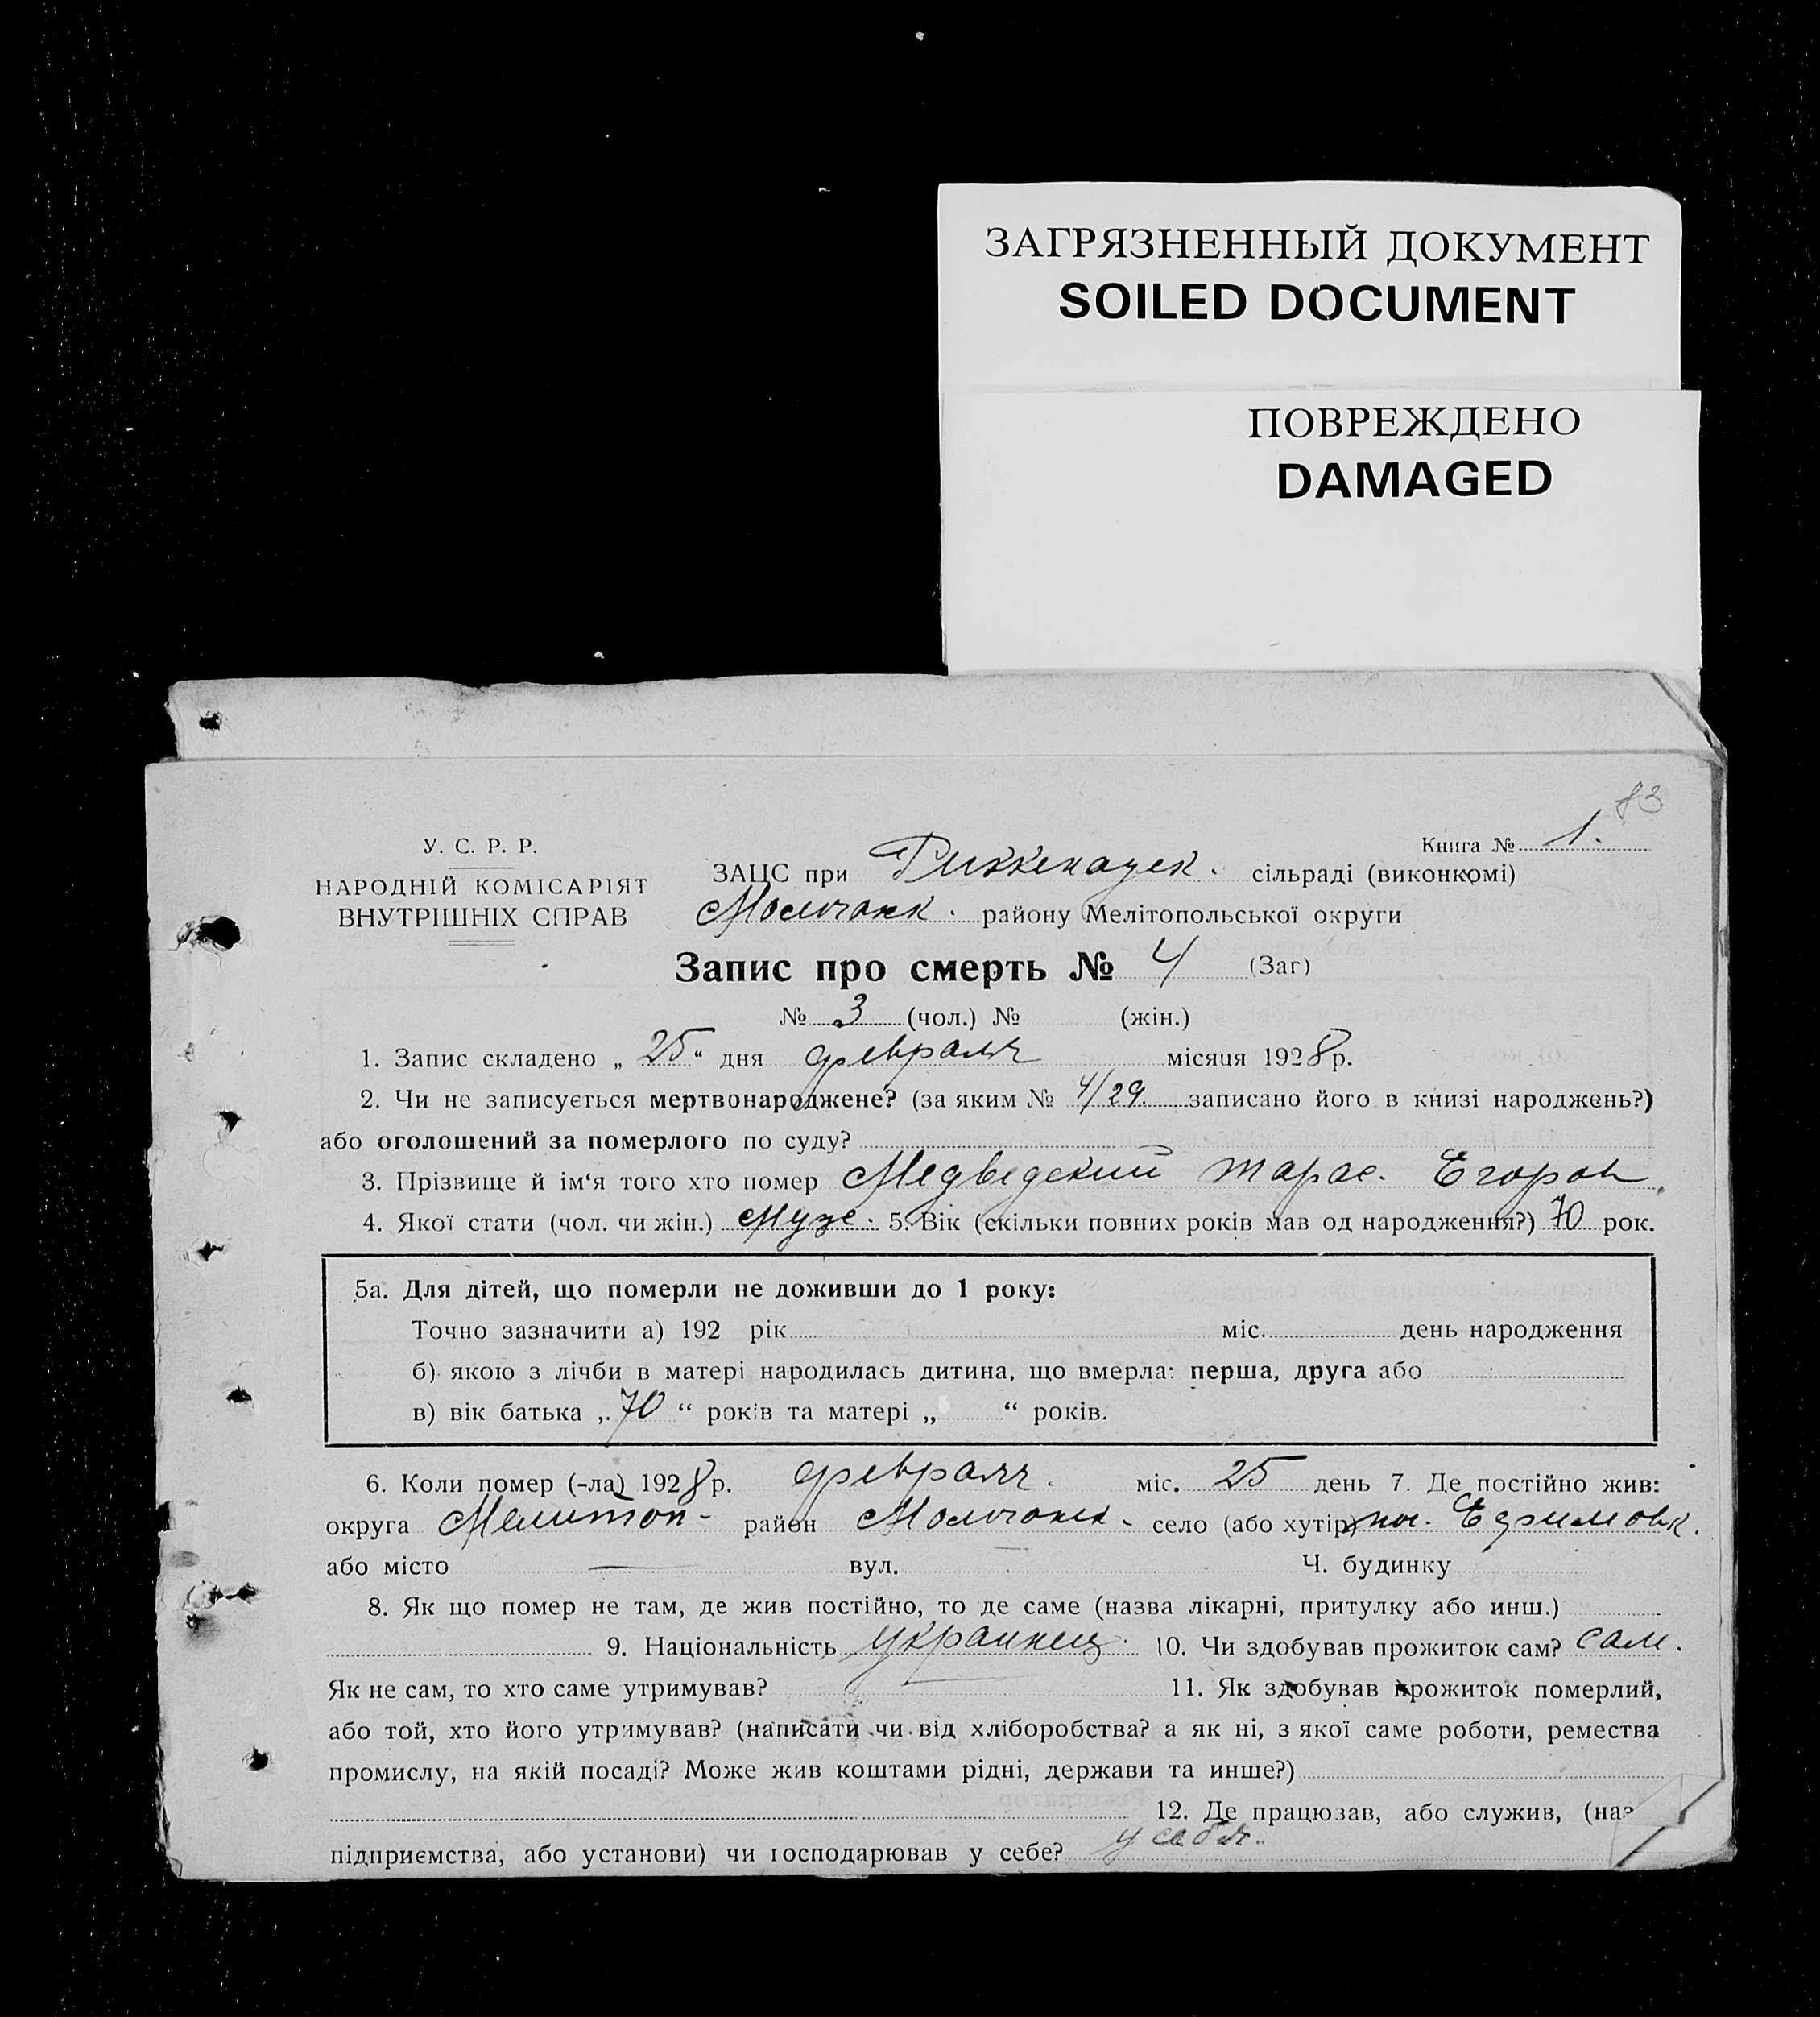 ЗАГРЯЗНЕННЫЙ ДОКУМЕНТ
SOILED DOCUMENT
ПОВРЕЖДЕНО
DAMAGED
83
У. С. Р. Р.
НАРОДНІЙ КОМІСАРІЯТ
ВНУТРІШНІХ СПРАВ
Книга № 1.
ЗАЦС при Риккенауск. сільраді (виконкомі)
Молочанск. району Мелітопольської округи
Запис про смерть № 4 (Заг)
№ 3 (чол.) № (жін.)
1. Запис складено „ 25 “ дня февраля місяця 1928 р.
2. Чи не записується мертвонароджене? (за яким № 4/29 записано його в книзі народжень?)
або оголошений за померлого по суду?
3. Прізвище й ім‘я того хто помер Медведский Тарас. Егоров.
4. Якої стати (чол. чи жін.) Муж. 5. Вік (скільки повних років мав од народження?) 70 рок.
5а. Для дітей, що померли не доживши до 1 року:
Точно зазначити а) 192 рік міс. день народження
б) якою з лічби в матері народилась дитина, що вмерла: перша, друга або
в) вік батька „ 70 “ років та матері „ “ років.
6. Коли помер (-ла) 1928 р. февраля. міс. 25 день 7. Де постійно жив:
округа Мелитоп - район Молочанск - село (або хутір) пос. Ефимовк.
або місто — вул. Ч. будинку
8. Як що помер не там, де жив постійно, то де саме (назва лікарні, притулку або инш.)
9. Національність украинец. 10. Чи здобував прожиток сам? сам.
Як не сам, то хто саме утримував? 11. Як здобував прожиток померлий,
або той, хто його утримував? (написати чи від хліборобства? а як ні, з якої саме роботи, ремества
промислу, на якій посаді? Може жив коштами рідні, держави та инше?)
12. Де працював, або служив, (наз
підприємства, або установи) чи господарював у себе? у себя.